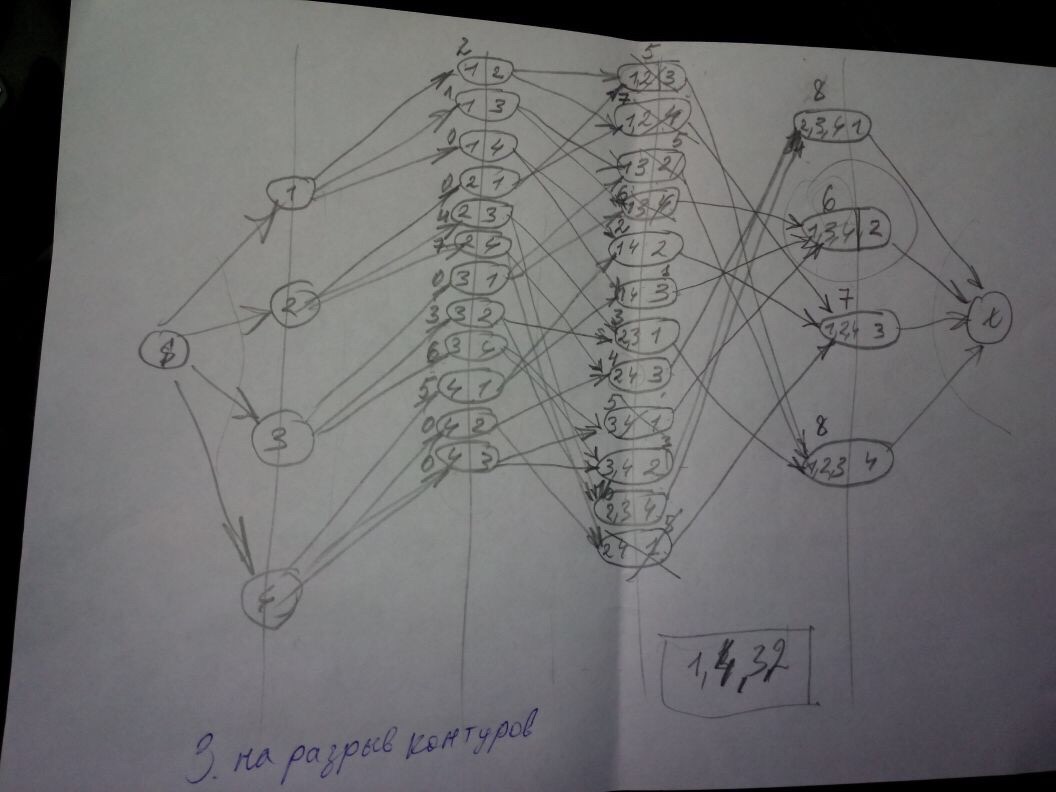 2
1 2
1
1 3
0
1 4
0
2 1
4
2 3
7
2 4
0
3 1
3
3 2
6
3 4
5
4 1
0
4 2
0
4 3
5
12 3
7
1,2 4
5
13 2
6
13 4
2
14 2
1
14 3
3
2,3 1
4
24 3
5
34 1
3
3,4 2
2,3 4
5
24 1
8
2,3,4 1
6
1,3,4 2
7
1,2,4 3
8
1,2,3 4
1
2
3
4
s
t
1,4,3,2
3. на разрыв контуров